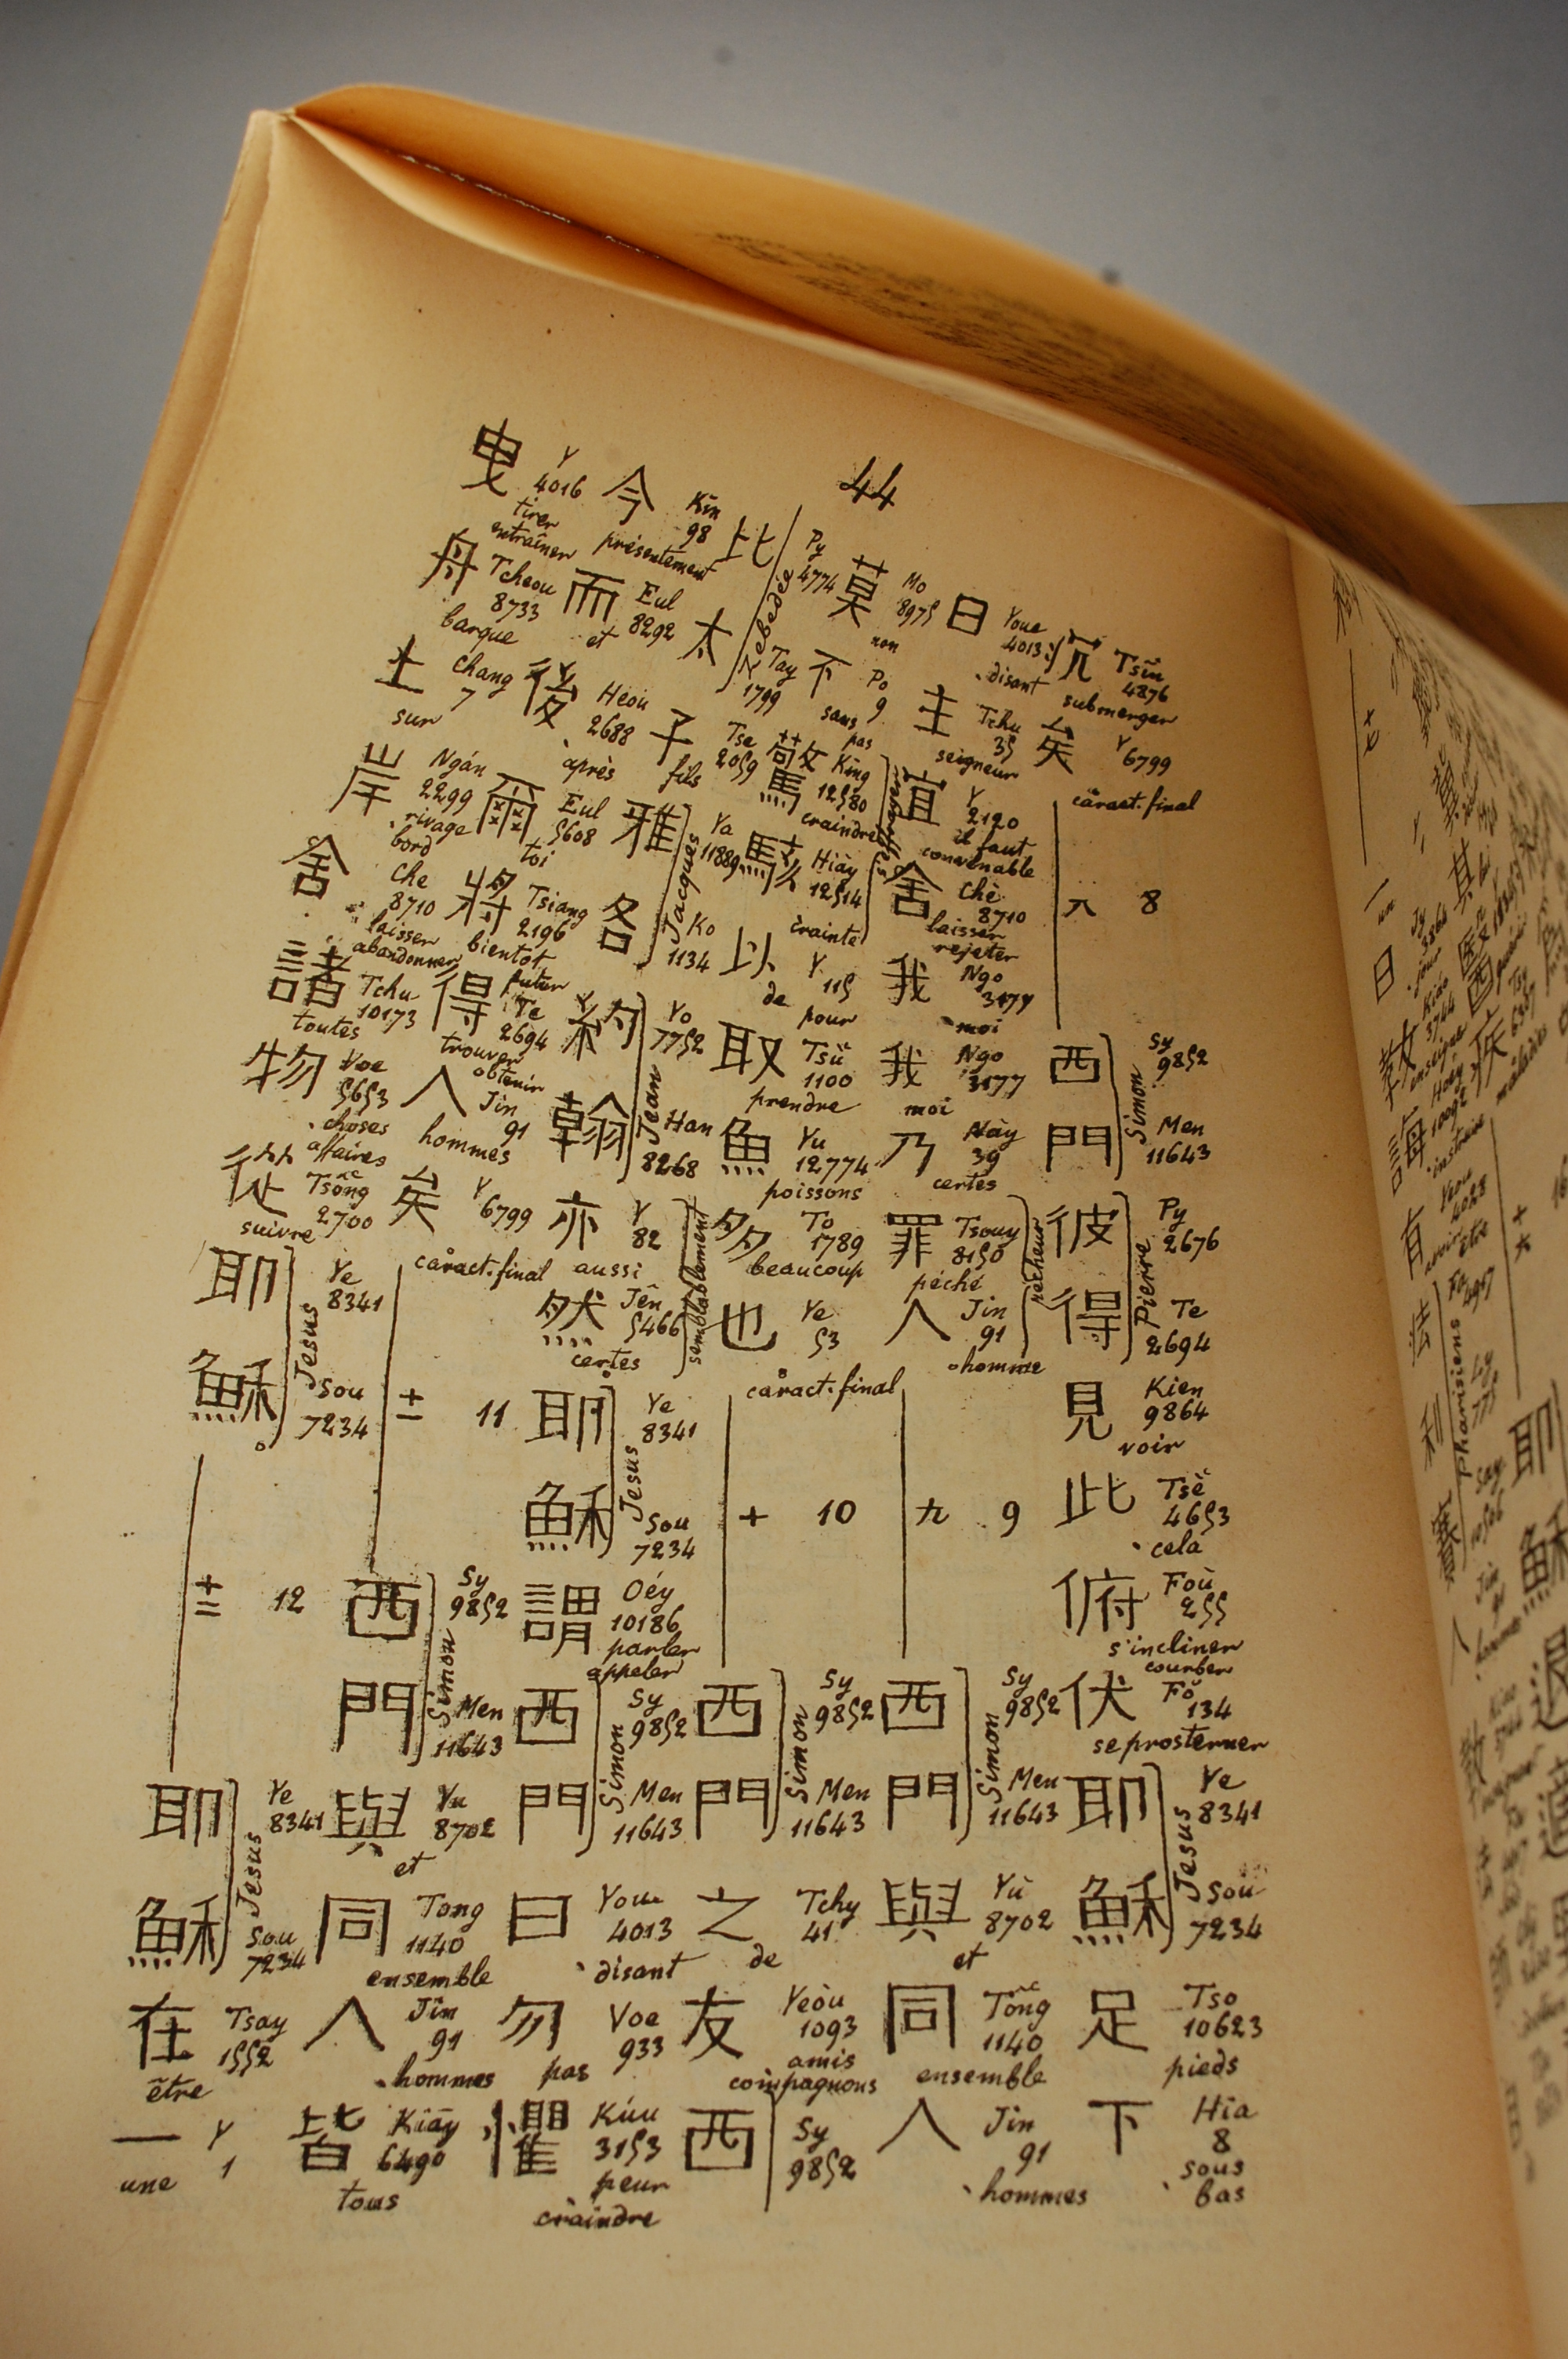 44
沉 Tsin 4876 submerger
矣 Y 6799 caract. final
八 8
西 Sy 9852
門 Men 11643
Simon
彼 Py 2676
得 Te 2694
Pierre
見 Kien 9864 voir
此 Tsè 4653 cela
俯 Foù 255 s'incliner courber
伏 Fŏ 134 se prosterner
耶 Ye 8341
穌 Soù 7234
Jesus
足 Tso 10623 pieds
下 Hia 8 sous bas
曰 Youe 4013 disant
主 Tchu 35 seigneur
宜 Y 2120 il faut convenable
舍 Chè 8710 laisser rejeter
我 Ngo 3177 moi
我 Ngo 3177 moi
乃 Này 39 certes
罪 Tsouy 8150 péché
人 Jin 91 homme
pécheur
九 9
西 Sy 9852
門 Men 11643
Simon
與 Yù 8702 et
同 Tông 1140 ensemble
人 Jin 91 hommes
莫 Mo 8975 non
不 Po 9 sans pas
驚 King 12580 craindre
駭 Hiày 12514 crainte
以 Y 115 de pour
取 Tsü 1100 prendre
魚 Yu 12774 poissons
多 To 1789 beaucoup
也 Ye 53 caract. final
十 10
西 Sy 9852
門 Men 11643
Simon
之 Tchy 41 de
友 Yeòu 1093 amis compagnons
西 Sy 9852
比 Py 4774
太 Tay 1799
Zebedée
子 Tse 2059 fils
雅 Ya 11889
各 Ko 1134
Jacques
約 Yo 7752
翰 Han 8268
Jean
亦 Y 82 aussi
然 Jên 5466 certes
semblablement
耶 Ye 8341
穌 Sou 7234
Jesus
謂 Oéy 10186 parler appeler
西 Sy 9852
門 Men 11643
Simon
曰 Youe 4013 disant
勿 Voe 933 pas
懼 Kúu 3153 peur craindre
今 Kin 98 présentement
而 Eul 8292 et
後 Héou 2688 après
爾 Eul 5608 toi
將 Tsiang 2196 bientôt futur
得 Te 2694 trouver obtenir
人 Jin 91 hommes
矣 Y 6799 caract. final
十一 11
西 Sy 9852
門 Men 11643
Simon
與 Yu 8702 et
同 Tong 1140 ensemble
人 Jin 91 hommes
皆 Kiāy 6490 tous
曳 Y 4016 tirer entraîner
舟 Tcheou 8733 barque
上 Chang 7 sur
岸 Ngán 2299 rivage bord
舍 Che 8710 laisser abandonner
諸 Tchu 10173 toutes
物 Voe 5653 choses affaires
從 Tsông 2700 suivre
耶 Ye 8341
穌 Sou 7234
Jesus
十二 12
耶 Ye 8341
穌 Sou 7234
Jesus
在 Tsay 1552 être
一 Y 1 une